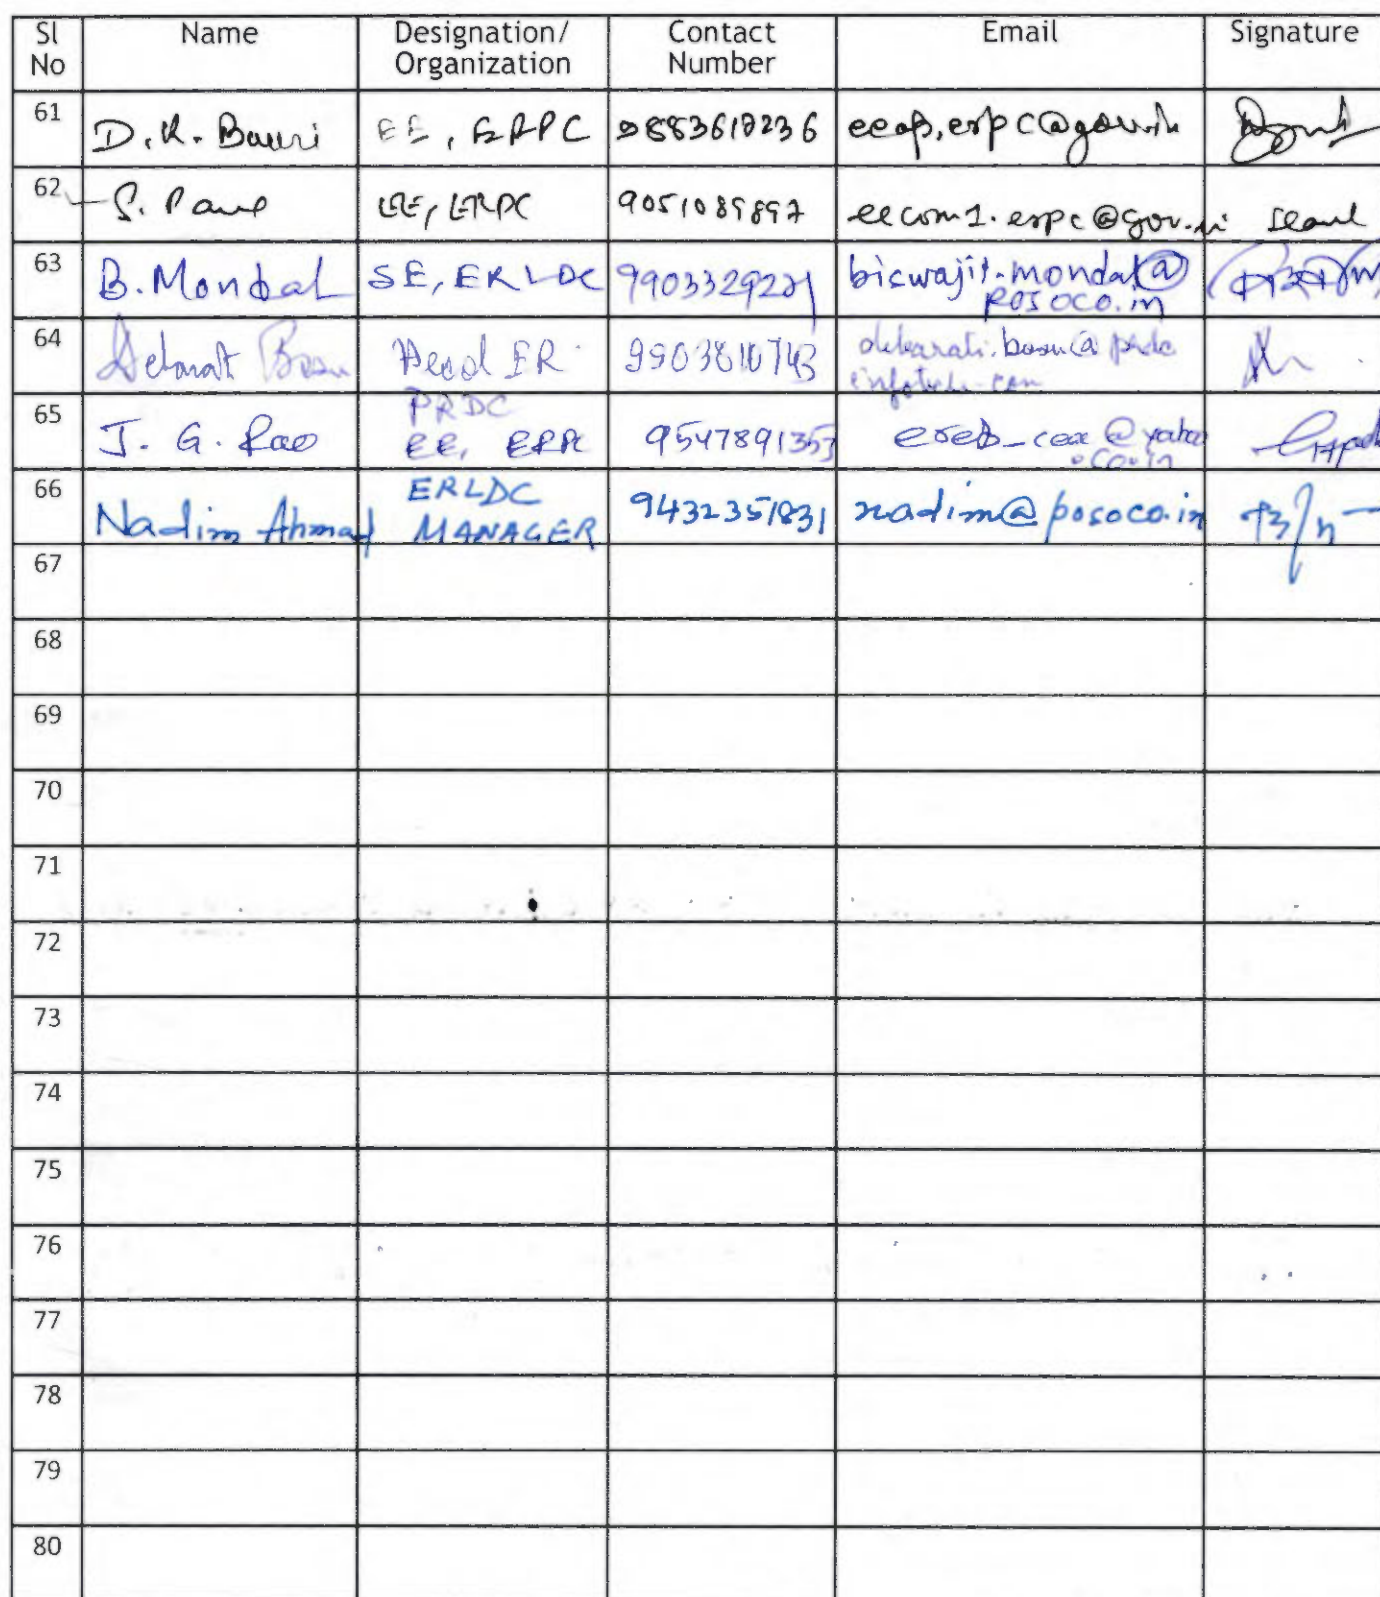 Sl No Name Designation/ Organization Contact Number Email Signature
61 D.K. Bauri EE, ERPC 9883618236 eeop.erpc@gov.in
62 S. Paul EE, ERPC 9051085897 eecom1.erpc@gov.in
63 B. Mondal SE, ERLDC 9903329221 biswajit.mondal@
posoco.in
64 Debarati Basu Head ER 9903810743 debarati.basu@prdc
infotech.com
PRDC
65 J. G. Rao EE, ERPC 9547891353 ereb_cea@yahoo
.co.in
ERLDC
66 Nadim Ahmad MANAGER 9432351831 nadim@posoco.in
67
68
69
70
71
72
73
74
75
76
77
78
79
80